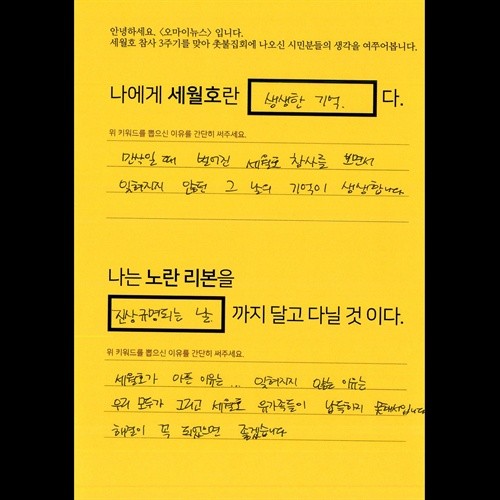 안녕하세요, 〈오마이뉴스〉 입니다.
세월호 참사 3주기를 맞아 촛불집회에 나오신 시민분들의 생각을 여쭈어봅니다.
나에게 세월호란 생생한 기억. 다.
위 키워드를 뽑으신 이유를 간단히 써주세요.
만삭일 때 벌어진 세월호 참사를 보면서
잊혀지지 않던 그 날의 기억이 생생합니다.
나는 노란 리본을
진상규명되는 날. 까지 달고 다닐 것 이다.
위 키워드를 뽑으신 이유를 간단히 써주세요.
세월호가 아픈 이유는... 잊혀지지 않는 이유는
우리 모두가 그리고 세월호 유가족들이 납득하지 못해서입니다
해결이 꼭 되었으면 좋겠습니다